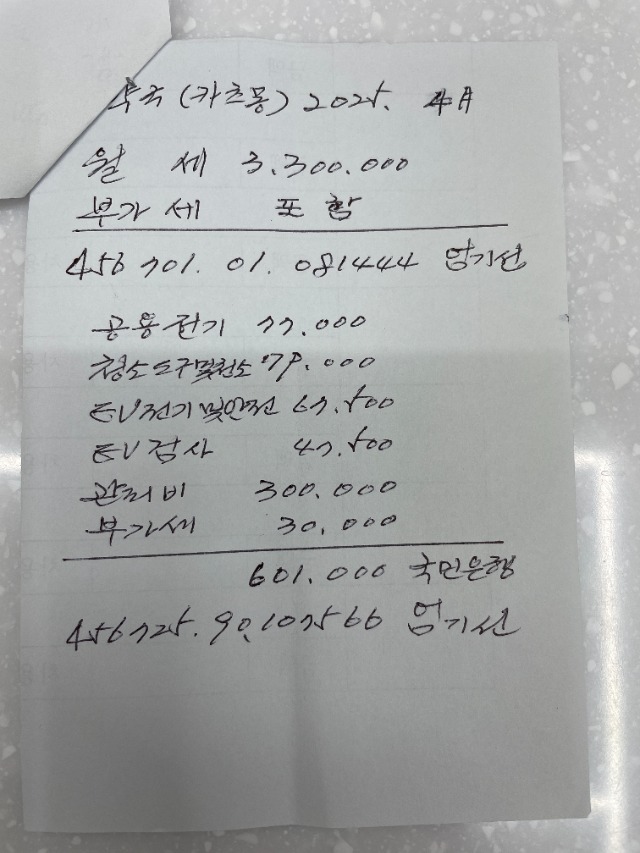 국 (카츠몽) 2025. 4月
월 세 3.300.000
부가세 포함
456701. 01. 081444 엄기선
공용전기 77.000
청소도구및청소 79.000
EV전기및안전 67.500
EV검사 47.500
관리비 300.000
부가세 30.000
601.000 국민은행
456725. 90. 107566 엄기선